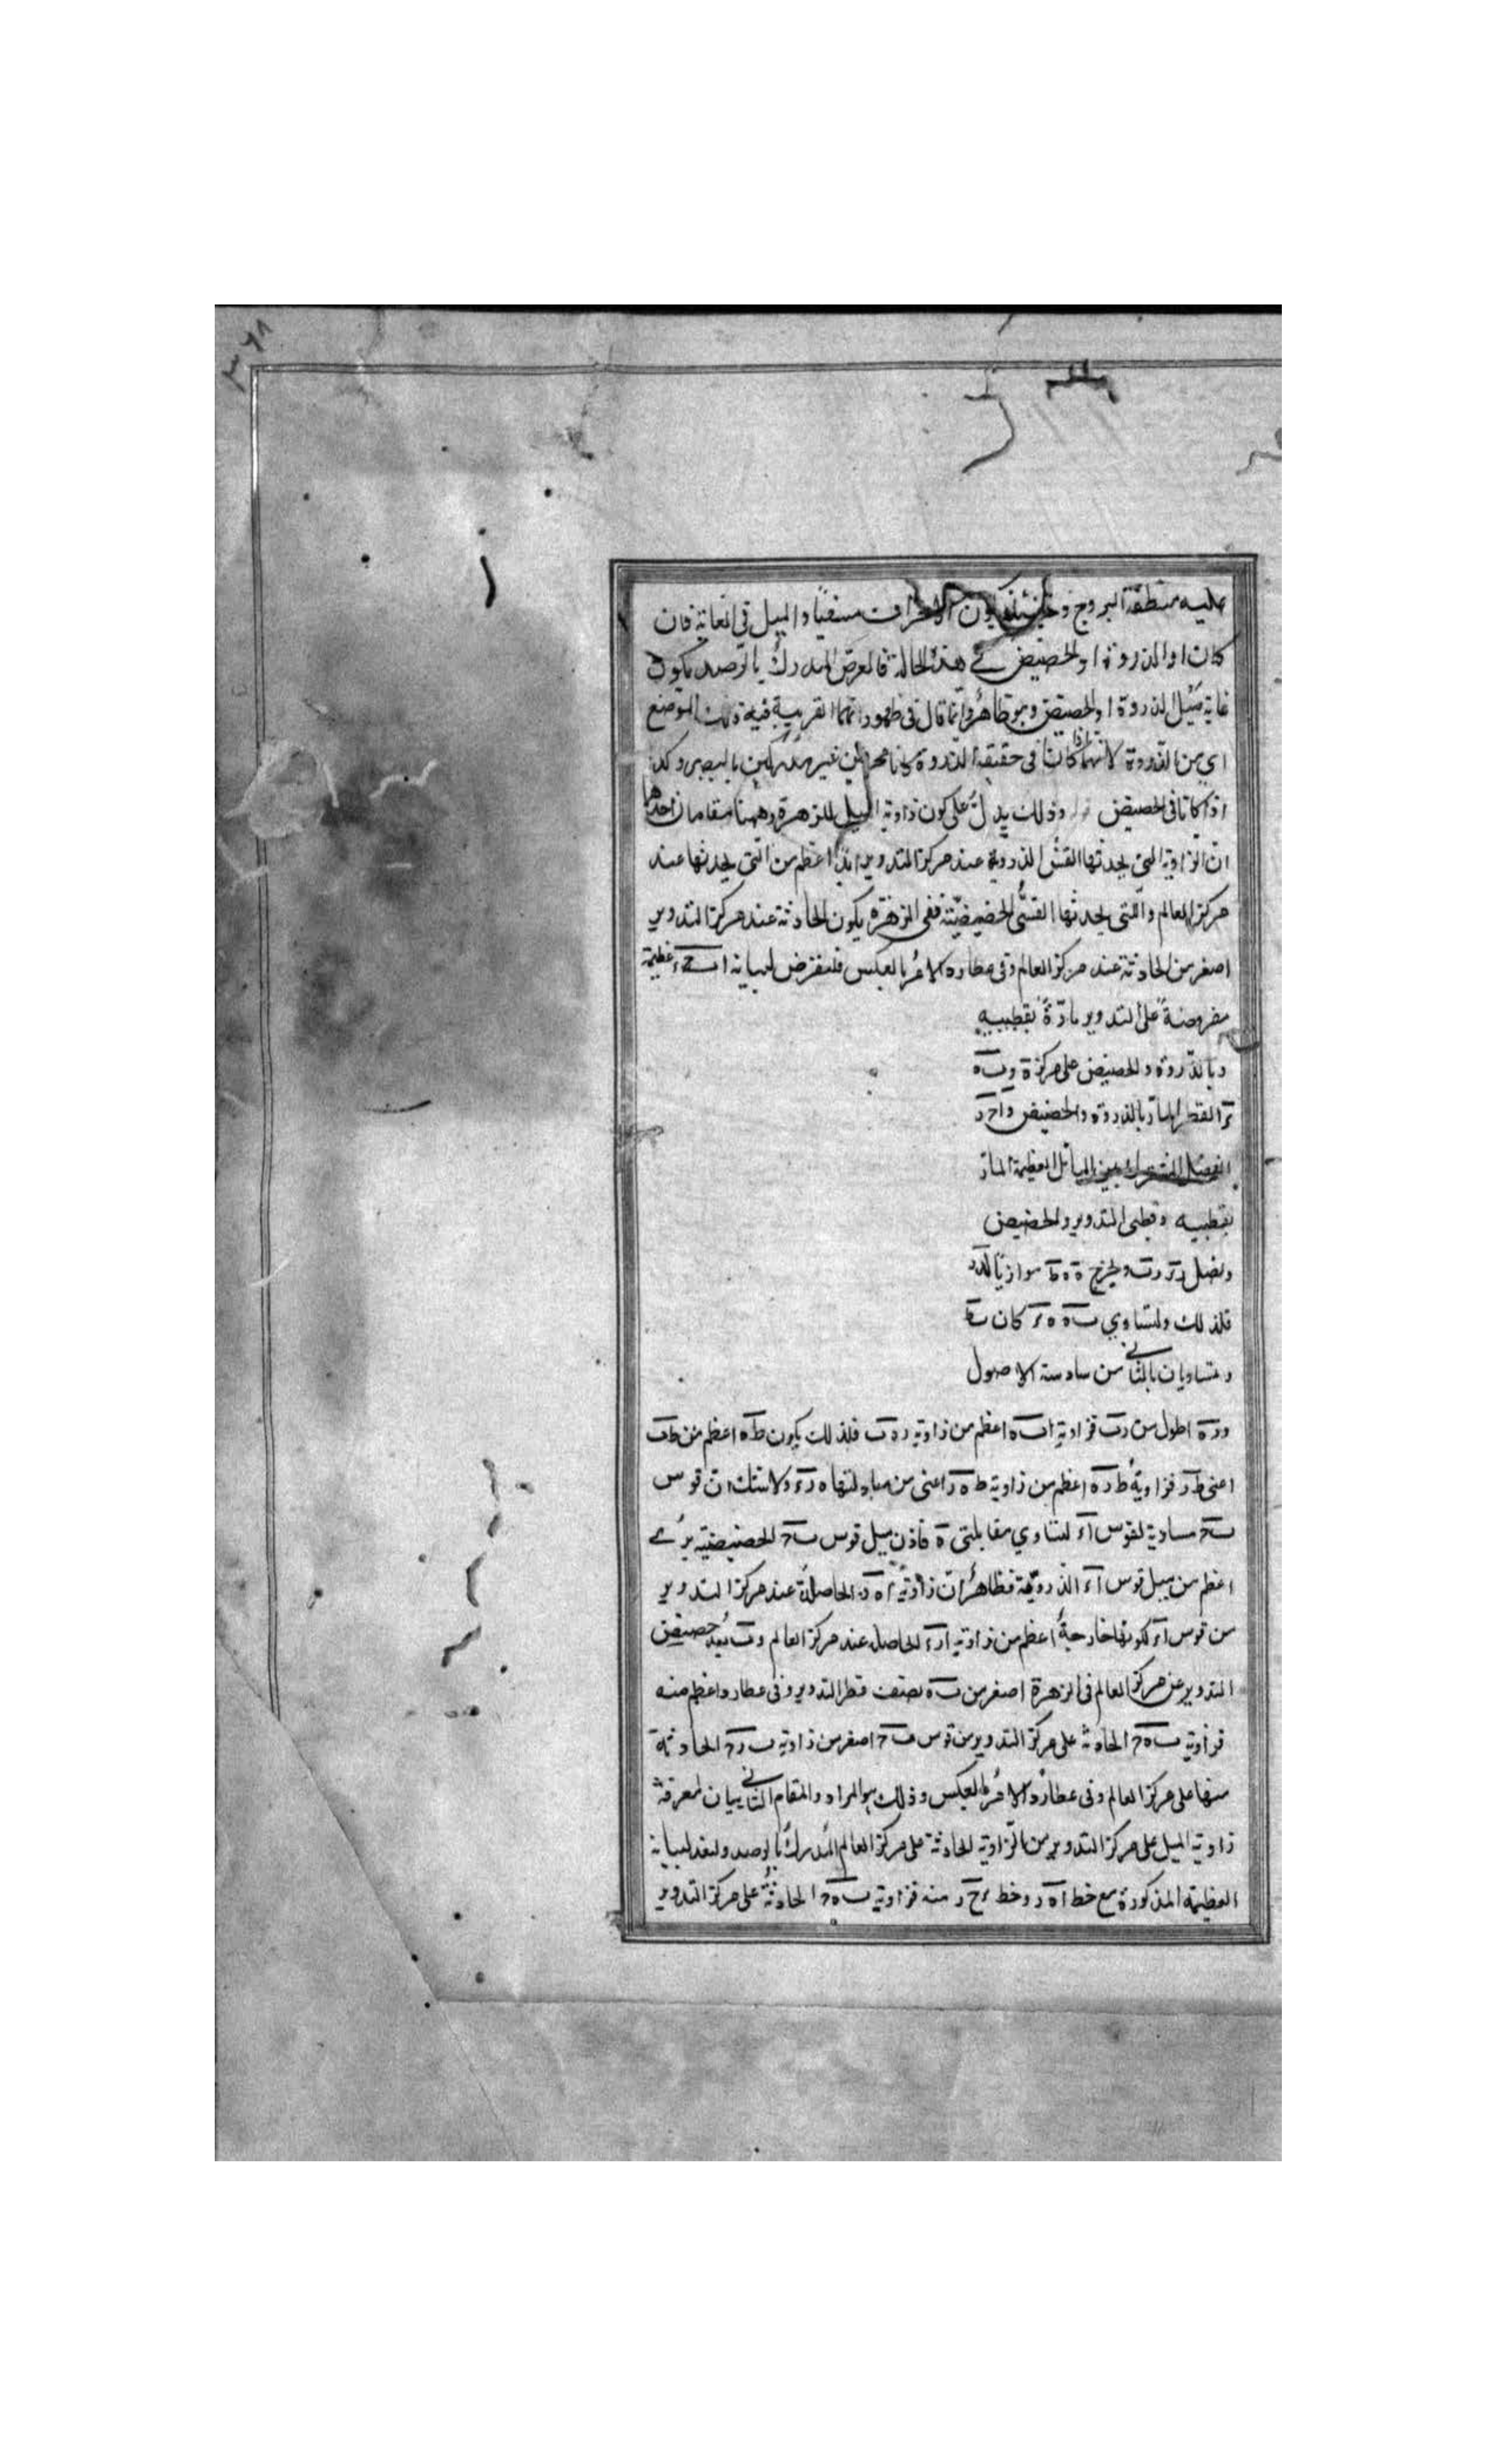 ٣٦٨
عليه منطقة البروج وحينئذ يكون الانحراف منفيًا والميل في الغاية فان
كانا و الذروة او الحضيض في هذه الحالة فالعرض المدرك بالرصد يكون
غاية ميل الذروة او الحضيض وهو ظاهر وانما قال في ظهوراتهما القريبة فيه ذلك الموضع
اي من الذروة لانهما اذا كانا في حقيقة الذروة كانا محترقين غير مدركين بالبصر وكذا
اذا كانا في الحضيض وذلك يدل على كون زاوية الميل للزهرة وههنا مقامان احدهما
ان الزاوية التي يحدثها القسي الذروية عند مركز التدوير ابدًا اعظم من التي يحدثها عند
مركز العالم والتي يحدثها القسي الحضيضية ففي الزهرة يكون الحادثة عند مركز التدوير
اصغر من الحادثة عند مركز العالم وفي عطارد الامر بالعكس فلنفرض لبيانه عظيمة
مفروضة على التدوير مارة بقطبيه
وبالذروة والحضيض على مركز ه و ب ه
القطر المار بالذروة والحضيض و ا ح د
الفصل المشترك بين المائل العظيمة المار
بقطبيه وقطبي التدوير والحضيض
ونصل ونخرج ه ط موازيًا
فلذلك ولتساوي كان
متساويان بالثاني من سادسة الاصول
و ر ه اطول من ر ب فزاوية اعظم من زاوية فلذلك يكون ط ه اعظم من ط ب
اعني ط ر فزاوية ط ر ه اعظم من زاوية ط ه ر اعني من مبادلتها ولا شك ان قوس
ب ح مساوية لقوس ا ء لتساوي مقابلتي ه فاذن ميل قوس ب ح الحضيضية يرى
اعظم من ميل قوس ا ء الذروية فظاهر ان زاوية الحاصلة عند مركز التدوير
من قوس ا ء لكونها خارجة اعظم من زاوية ا ر ء الحاصلة عند مركز العالم و بعد حضيض
التدوير عن مركز العالم في الزهرة اصغر من ب ه نصف قطر التدوير وفي عطارد اعظم منه
فزاوية ب ه ح الحادثة على مركز التدوير من قوس ب ح اصغر من زاوية ب ر ح الحادثة
منها على مركز العالم وفي عطارد الامر بالعكس وذلك هو المراد والمقام الثاني بيان لمعرفة
زاوية الميل على مركز التدوير من الزاوية الحادثة على مركز العالم المدرك بالرصد ولنعد لبيانه
العظيمة المذكورة مع خط ا ه ر وخط منه فزاوية ب ه ح الحادثة على مركز التدوير